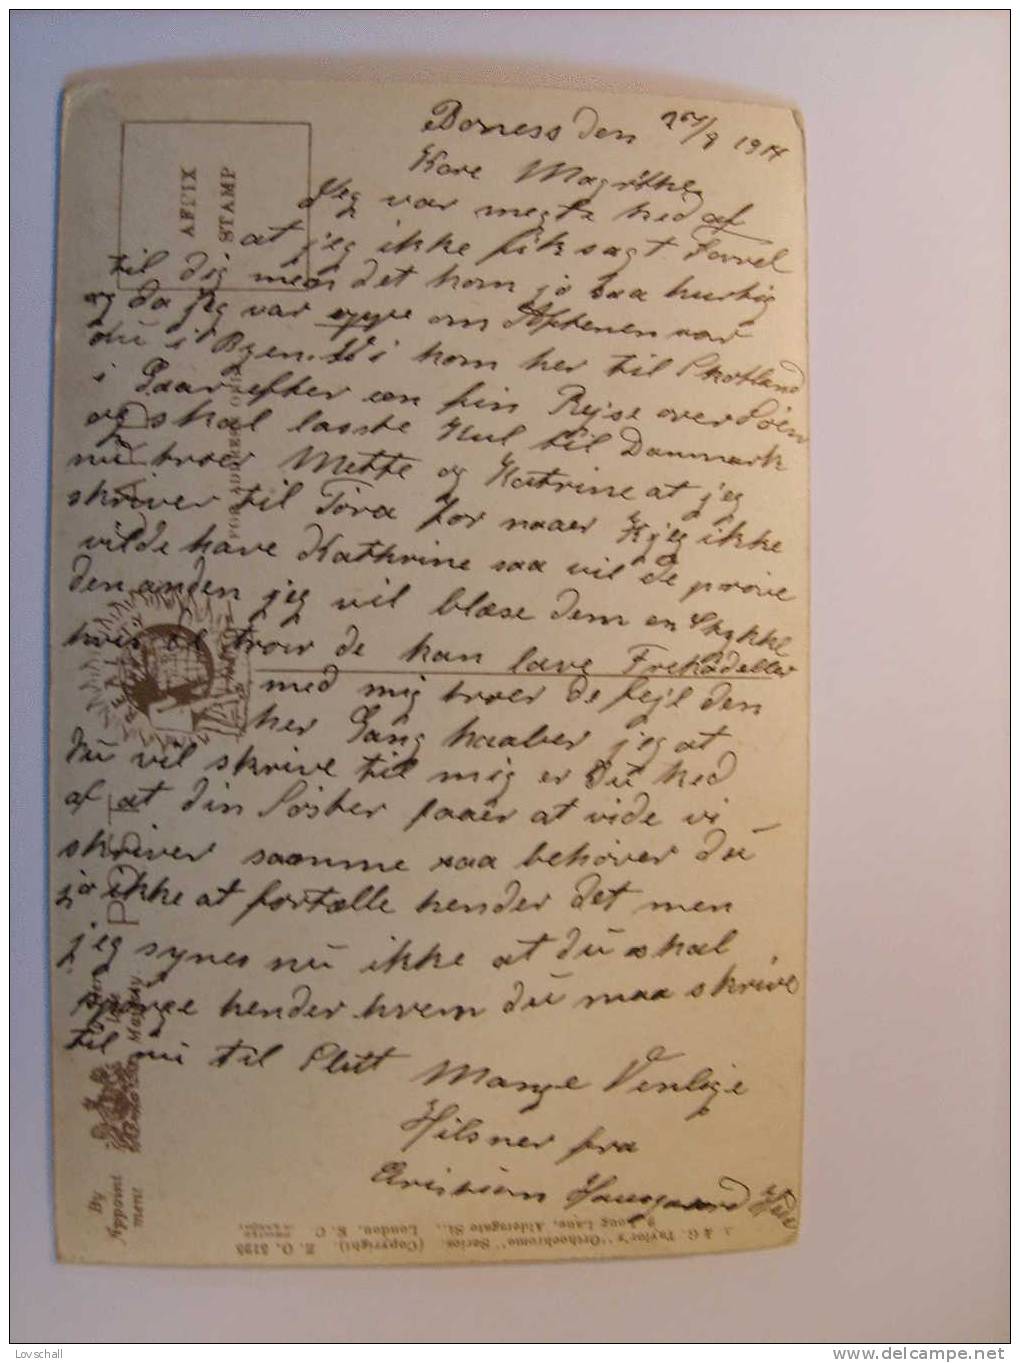 Boness den 27/8 1914
Kære Magrethe
Jeg var megte ked af
at jeg ikke fik sagt Farvel
til dig men det kom jo saa hurtig
og da jeg var oppe om Aftenen var
du i Byen. Vi kom her til Skotland
i Gaar efter en fin Rejse over Søen
og skal laste Kul til Danmark
nu troer Mette og Katrine at jeg
skriver til Tora for naaer jeg ikke
vilde have Kathrine saa vil de prøve
den anden jeg vil blæse dem en Stykke
hvis de troer de kan lave Frekadeller
med mig troer de fejl den
her Gang haaber jeg at
du vil skrive til mig er du ked
af at din Søster faaer at vide vi
skriver samme saa behøver du
jo ikke at fortælle hender det men
jeg synes nu ikke at du skal
spørge hender hvem du maa skrive
til nu til Slut Mange Venlige
Hilsner fra
Cristian Haugaard
AFFIX
STAMP
FOR ADDRESS ONLY
By
Appoint
ment
J. & G. Taylor's "Orthochrome" Series.
9 Long Lane, Aldersgate St.,
(Copyright). E. O. 5125
London, E. C
Lovschall
www.delcampe.net